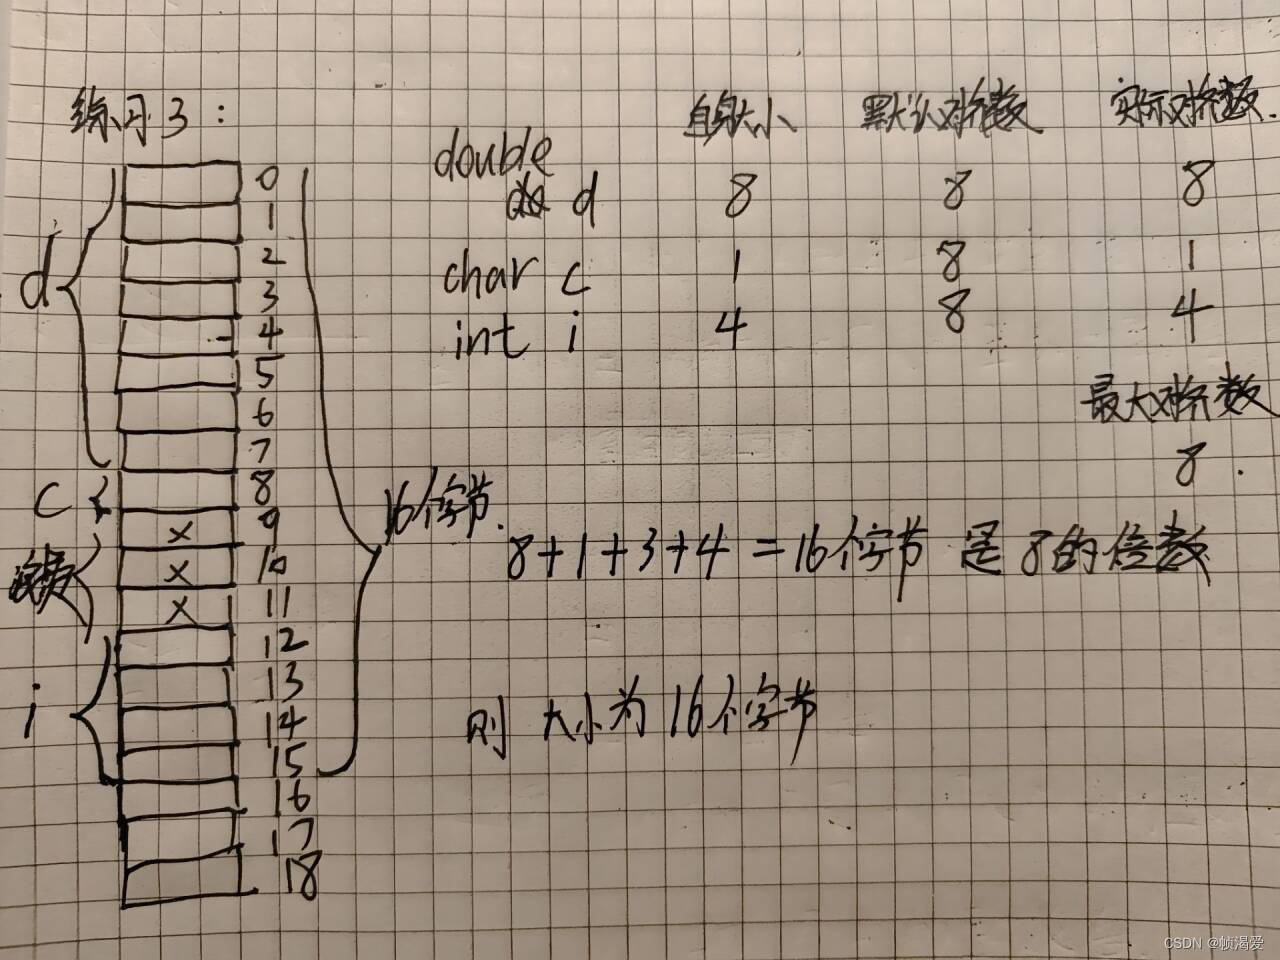 练习3：
自身大小 默认对齐数 实际对齐数.
double
d 8 8 8
char c 1 8 1
int i 4 8 4
最大对齐数
8.
d
c
浪费
i
0
1
2
3
4
5
6
7
8
9
10
11
12
13
14
15
16
17
18
x
x
x
16个字节.
8+1+3+4=16个字节 是8的倍数
则 大小为16个字节
CSDN @帧渴爱